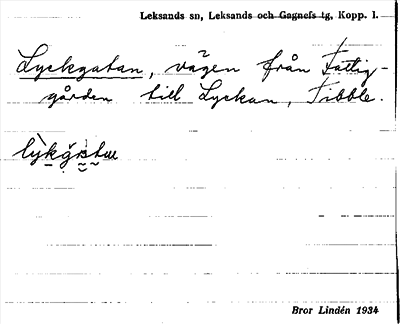 Leksands sn, Leksands och Gagnefs tg, Kopp. l.
Lyckgatan, vägen från Fattig-
gården till Lyckan, Tibble.
Bror Lindén 1934